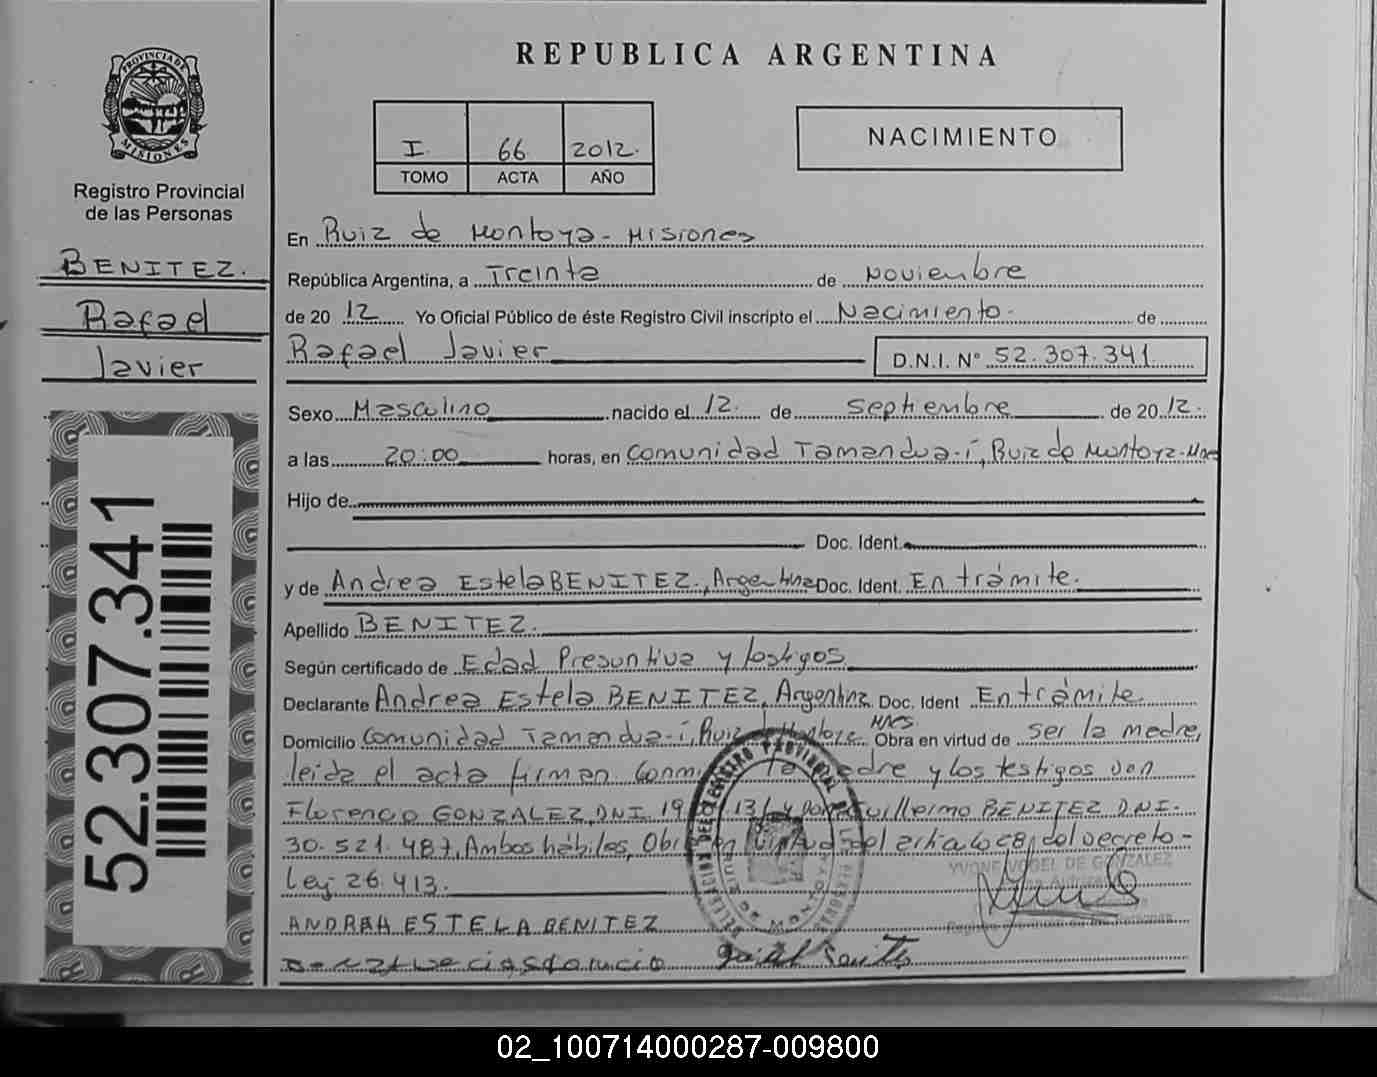 REPUBLICA ARGENTINA
PROVINCIA DE
MISIONES
Registro Provincial
de las Personas
BENITEZ.
Rafael
Javier
52.307.341
I. 66 2012.
TOMO ACTA AÑO
NACIMIENTO
En Ruiz de Montoya - Misiones
República Argentina, a Treinta de Noviembre
de 20 12 Yo Oficial Público de éste Registro Civil inscripto el Nacimiento. de
Rafael Javier D.N.I. N° 52.307.341
Sexo Masculino nacido el 12. de Septiembre de 20 12.
a las 20:00 horas, en Comunidad Tamandua-í, Ruiz de Montoya - Mnes
Hijo de
Doc. Ident.
y de Andrea Estela BENITEZ., Argentina Doc. Ident. En trámite.
Apellido BENITEZ.
Según certificado de Edad Presuntiva y testigos
Declarante Andrea Estela BENITEZ, Argentina Doc. Ident En trámite
Domicilio Comunidad Tamandua-í, Ruiz de Montoya Mnes Obra en virtud de ser la madre,
leída el acta firman la madre y los testigos Don
Florencio GONZALEZ, DNI. 19 y Don Guillermo BENITEZ D.N.I.
30.521.487, Ambos hábiles, Obra en virtud del artículo 28, del Decreto -
Ley 26.413.
YVONE VOGEL DE GONZALEZ
ANDREA ESTELA BENITEZ
02_100714000287-009800